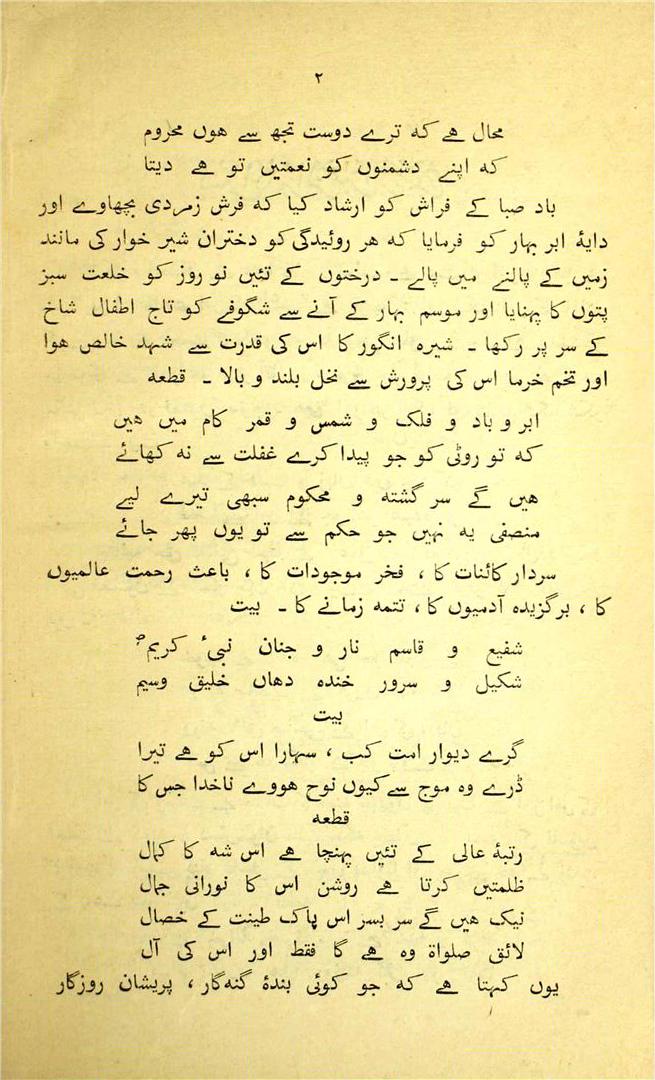 ۲
محال ہے کہ ترے دوست تجھ سے ہوں محروم
کہ اپنے دشمنوں کو نعمتیں تو ہے دیتا
باد صبا کے فراش کو ارشاد کیا کہ فرش زمردی بچھاوے اور
دایۂ ابر بہار کو فرمایا کہ ہر روئیدگی کو دختران شیر خوار کی مانند
زمیں کے پالنے میں پالے ۔ درختوں کے تئیں نو روز کو خلعت سبز
پتوں کا پہنایا اور موسم بہار کے آنے سے شگوفے کو تاج اطفال شاخ
کے سر پر رکھا ۔ شیرہ انگور کا اس کی قدرت سے شہد خالص ہوا
اور تخم خرما اس کی پرورش سے نخل بلند و بالا ۔ قطعہ
ابر و باد و فلک و شمس و قمر کام میں ہیں
کہ تو روٹی کو جو پیدا کرے غفلت سے نہ کھائے
ہیں گے سر گشتہ و محکوم سبھی تیرے لیے
منصفی یہ نہیں جو حکم سے تو یوں پھر جائے
سردار کائنات کا ، فخر موجودات کا ، باعث رحمت عالمیوں
کا ، برگزیدہ آدمیوں کا ، تتمہ زمانے کا ۔ بیت
شفیع و قاسم نار و جنان نبیٔ کریمؐ
شکیل و سرور خندہ دھاں خلیق وسیم
بیت
گرے دیوار امت کب ، سہارا اس کو ہے تیرا
ڈرے وہ موج سے کیوں نوح ہووے ناخدا جس کا
قطعہ
رتبۂ عالی کے تئیں پہنچا ہے اس شہ کا کمال
ظلمتیں کرتا ہے روشن اس کا نورانی جمال
نیک ہیں گے سر بسر اس پاک طینت کے خصال
لائق صلواۃ وہ ہے گا فقط اور اس کی آل
یوں کہتا ہے کہ جو کوئی بندۂ گنہ گار ، پریشان روزگار